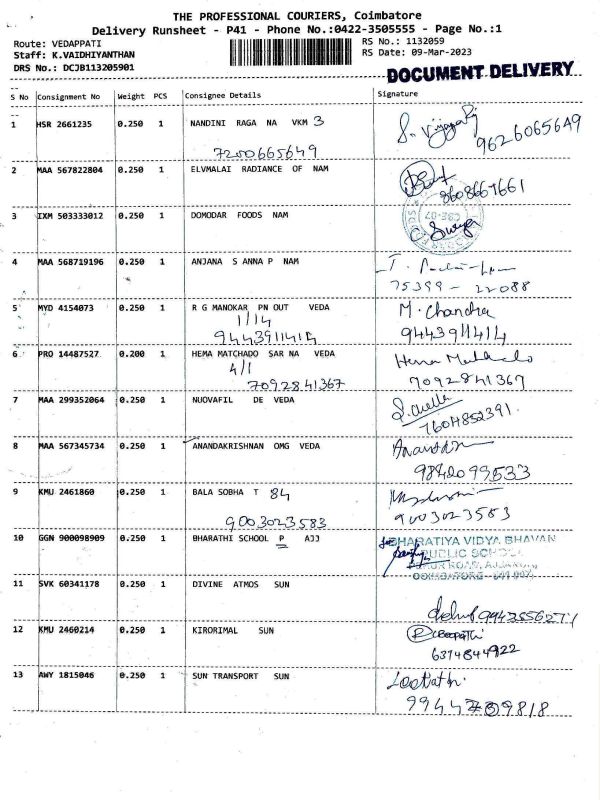 THE PROFESSIONAL COURIERS, Coimbatore
Delivery Runsheet - P41 - Phone No.:0422-3505555 - Page No.:1
Route: VEDAPPATI
RS No.: 1132059
Staff: K.VAIDHIYANTHAN
RS Date: 09-Mar-2023
DRS No.: DCJB113205901
DOCUMENT DELIVERY
S No Consignment No Weight PCS Consignee Details Signature
1 HSR 2661235 0.250 1 NANDINI RAGA NA VKM 3
7200665649 9626065649
2 MAA 567822804 0.250 1 ELVMALAI RADIANCE OF NAM
8608667661
3 IXM 503333012 0.250 1 DOMODAR FOODS NAM
4 MAA 568719196 0.250 1 ANJANA S ANNA P NAM
75399 - 22088
5 MYD 4154073 0.250 1 R G MANOKAR PN OUT VEDA M. Chandra
1/14
9443911414 9443911414
6 PRO 14487527 0.200 1 HEMA MATCHADO SAR NA VEDA Hema
4/1
7092841367 7092841367
7 MAA 299352064 0.250 1 NUOVAFIL DE VEDA
7604852391
8 MAA 567345734 0.250 1 ANANDAKRISHNAN OMG VEDA
9842099533
9 KMU 2461860 0.250 1 BALA SOBHA T 84
9003023583 9003023583
10 GGN 900098909 0.250 1 BHARATHI SCHOOL P AJJ BHARATIYA VIDYA BHAVAN
PUBLIC SCHOOL
11 SVK 60341178 0.250 1 DIVINE ATMOS SUN
12 KMU 2460214 0.250 1 KIRORIMAL SUN
6374844922
13 AWY 1815046 0.250 1 SUN TRANSPORT SUN